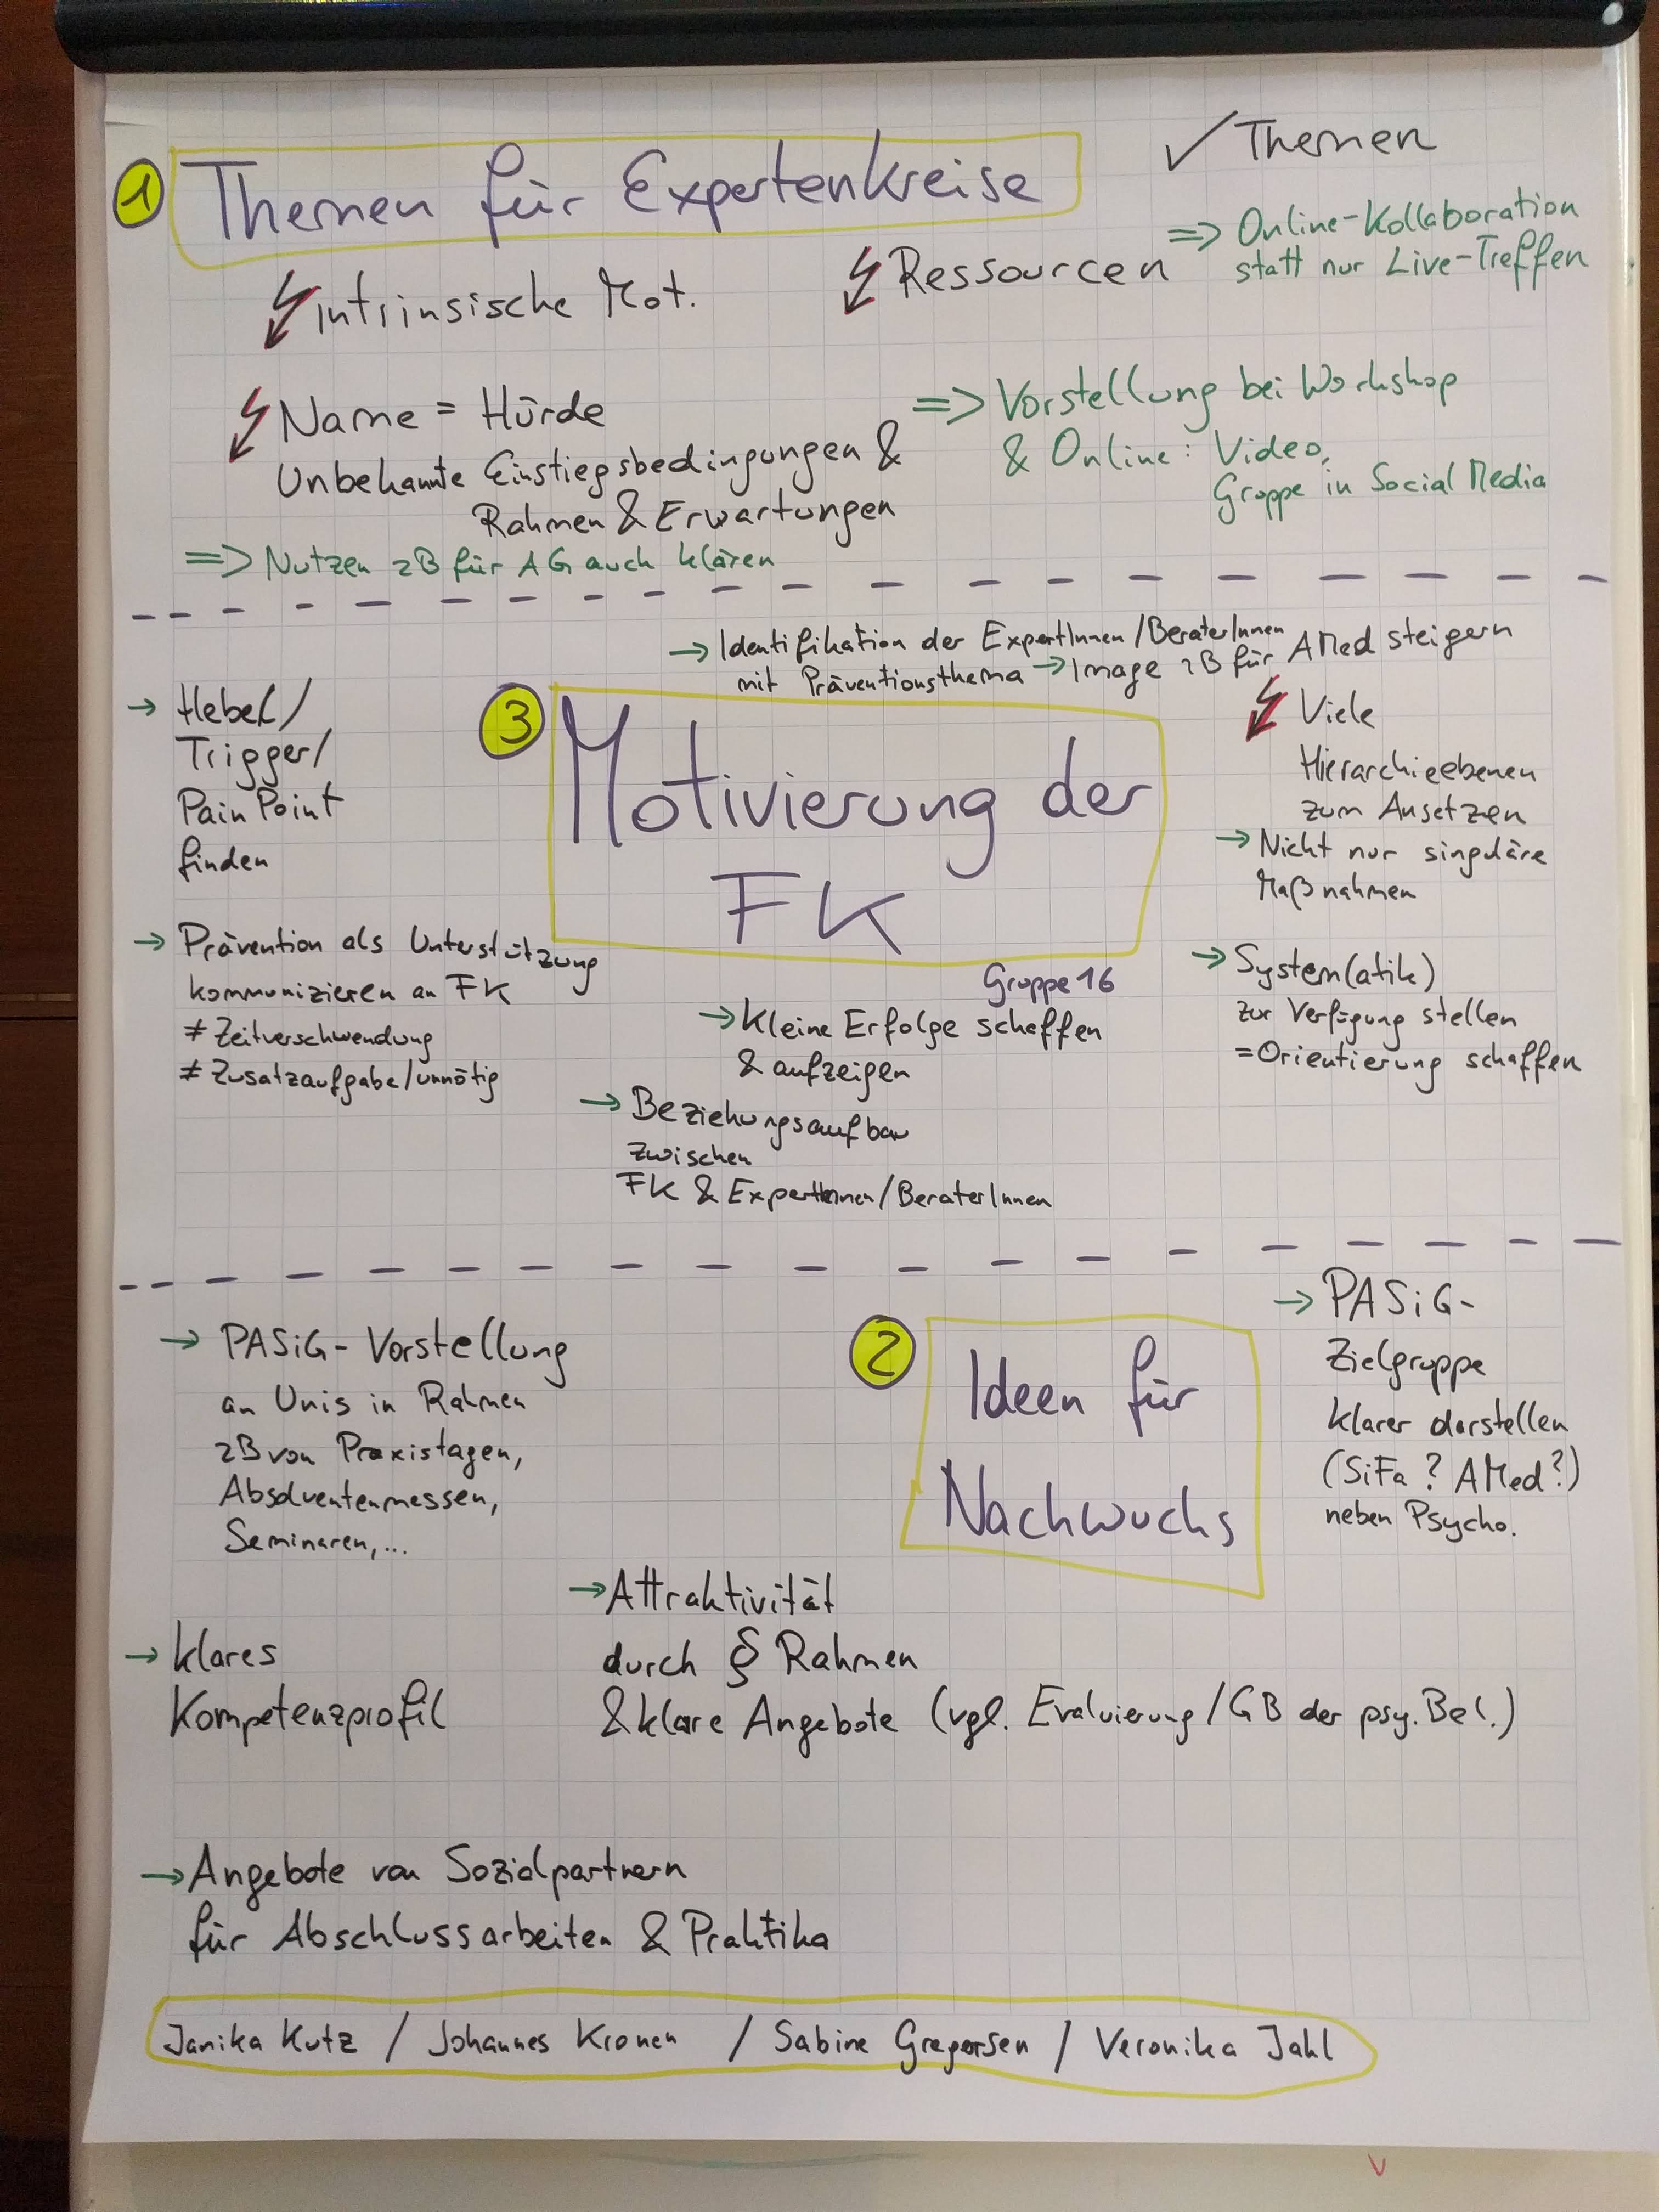 1 Themen für Expertenkreise
✓ Themen
Intrinsische Mot.
Ressourcen
=> Online-Kollaboration
statt nur Live-Treffen
Name = Hürde
Unbekannte Einstiegsbedingungen &
Rahmen & Erwartungen
=> Vorstellung bei Workshop
& Online: Video,
Gruppe in Social Media
=> Nutzen zB für AG auch klären
→ Identifikation der ExpertInnen/BeraterInnen
mit Präventionsthema → Image zB für AMed steigern
3 Motivierung der
FK
Gruppe 16
→ Hebel/
Trigger/
Pain Point
finden
→ Prävention als Unterstützung
kommunizieren an FK
≠ Zeitverschwendung
≠ Zusatzaufgabe/unnötig
→ Kleine Erfolge schaffen
& aufzeigen
→ Beziehungsaufbau
zwischen
FK & ExpertInnen/BeraterInnen
Viele
Hierarchieebenen
zum Ansetzen
→ Nicht nur singuläre
Maßnahmen
→ System(atik)
zur Verfügung stellen
= Orientierung schaffen
2 Ideen für
Nachwuchs
→ PASiG-Vorstellung
an Unis in Rahmen
zB von Praxistagen,
Absolventenmessen,
Seminaren,...
→ PASiG-
Zielgruppe
klarer darstellen
(SiFa? AMed?)
neben Psycho.
→ Attraktivität
durch § Rahmen
& klare Angebote (vgl. Evaluierung/GB der psy. Bel.)
→ klares
Kompetenzprofil
→ Angebote von Sozialpartnern
für Abschlussarbeiten & Praktika
Janika Kutz / Johannes Kronen / Sabine Gregersen / Veronika Jahl